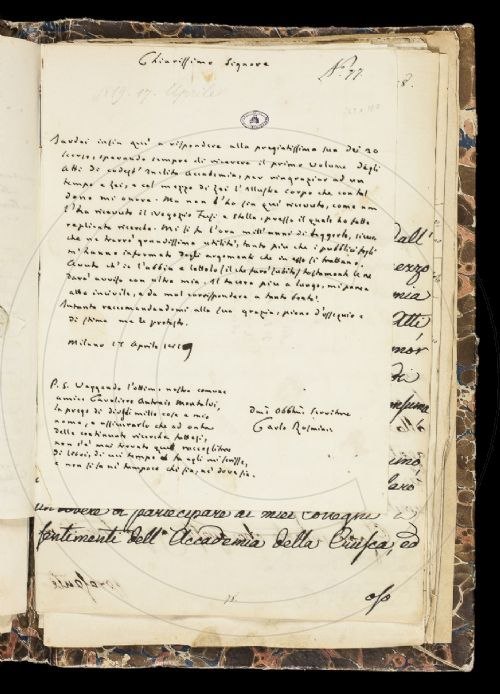 Chiarissimo Signore
N.° 77.
8.
1819. 17. Aprile
Tardai infin quì a rispondere alla pregiatissima sua dei 20
scorso, sperando sempre di ricevere il primo volume degli
Atti di codest' Inclita Accademia, per ringraziar ad un
tempo e Lei, e col mezzo di Lei l'illustre Corpo che con tal
dono mi onora. Ma non l'ho fin quì ricevuto, come non
l'ha ricevuto il Negozio Fusi e Stella, presso il quale ho fatto
replicate ricerche. Mi si fa l'ora mill'anni di leggerlo, sicuro
che ne trarrò grandissima utilità, tanto più che i pubblici fogli
m'hanno informato degli argomenti che in esso si trattano.
Avuto ch'io l'abbia e lettolo (il che farò subito) testamente le ne
darò avviso con altra mia. Il tacere più a lungo, mi parea
atto incivile, e da mal corrispondere a tanta bontà.
Intanto raccomandandomi alla sua grazia, pieno d'ossequio e
di stima me le protesto.
Milano 17 Aprile 1819
P. S. Veggendo l'ottimo nostro comune
amico Cavaliere Antonio Montalvi,
la prego di dirgli mille cose a mio
nome, e assicurarlo che ad onta
delle continuate ricerche fattesi,
non s'è mai trovato quel
di Leoni, di cui tempo fa egli mi scrisse,
e non si sa nè tampoco chi sia, nè dove sia.
Dmō Obblmō Servitore
Carlo Rosmini
dall'
mia
Atti
di
un dovere di partecipare ai miei Colleghi
sentimenti dell' Accademia della Crusca, ed